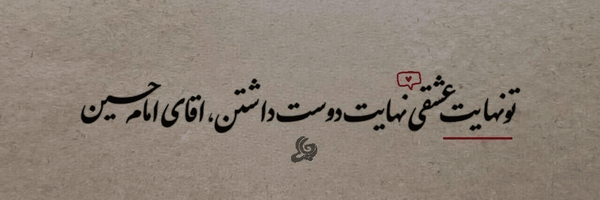 تو نهایت عشقی نهایت دوست داشتن، اقای امام حسین